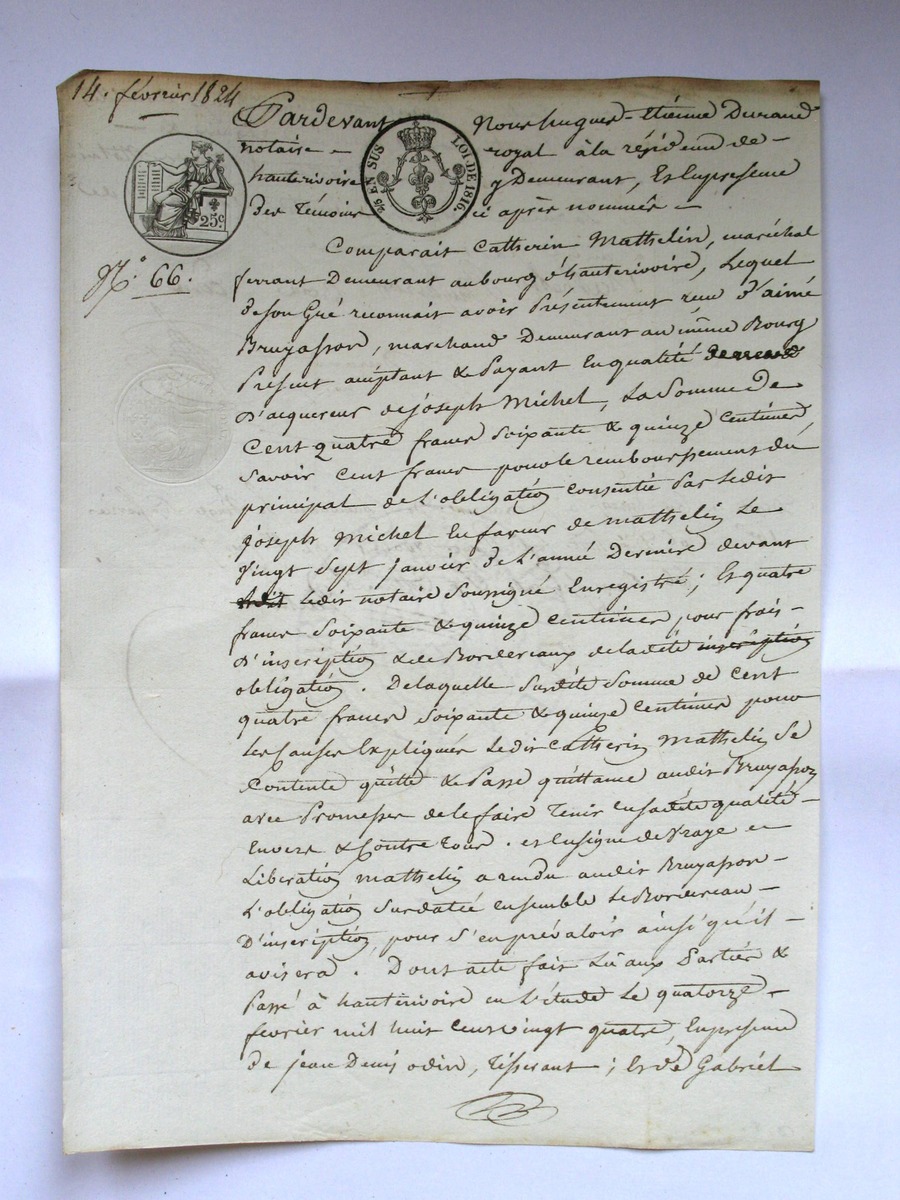 14. février 1824
Pardevant Nous hugues-étienne Durand
notaire royal à la résidence de
hauterivoire y Demeurant, Et Enpresence
Des Témoins ci après nommés
25 EN SUS LOI DE 1816.
25c.
N.° 66.
Comparait Catherin Mathelin, maréchal
ferrant Demeurant aubourg d'hauterivoire, Lequel
De son Gré reconnait avoir Présentement recu d'aimé
Bruyasson, marchand Demeurant au même Bourg
Présent acceptant & Payant En qualité
D'acquereur de joseph Michel, La Somme de
Cent quatre francs Soixante & quinze Centimes
Savoir Cent francs pour le remboursement du
principal de L'obligation Consentie Par Ledit
joseph Michel En faveur de mathelin Le
Vingt Sept janvier de L'année Derniere devant
Ledit notaire Soussigné Enregistré ; Et quatre
francs Soixante & quinze Centimes pour frais
D'inscription & de Bordereaux de ladite inscription
obligation. De laquelle Susdite Somme de Cent
quatre francs Soixante & quinze Centimes pour
Les Causes Expliquées Ledit Catherin Mathelin Se
Contente quitte & Passe quittance audit Bruyasson
avec Promesses de le faire Tenir en sadite qualité
Envers & Contre Tous. et En signe de Vraye et
Libération mathelin a rendu audit Bruyasson
L'obligation Susdatée ensemble Le Bordereau
D'inscription, pour S'en prévaloir ainsi qu'il
avisera. Dont acte fait Lû aux Parties &
Passé à hauterivoire en L'étude Le quatorze
février mil huit cent vingt quatre, Enpresence
de jean Denis odin, Tisserant ; Et de Gabriel